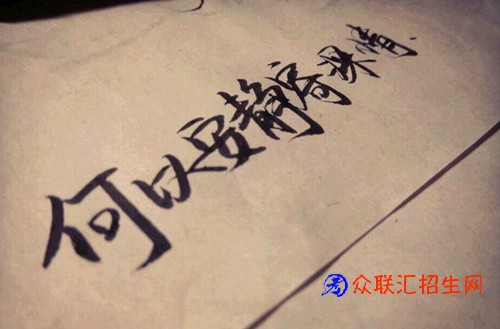 何以安静寄深情
众联汇招生网